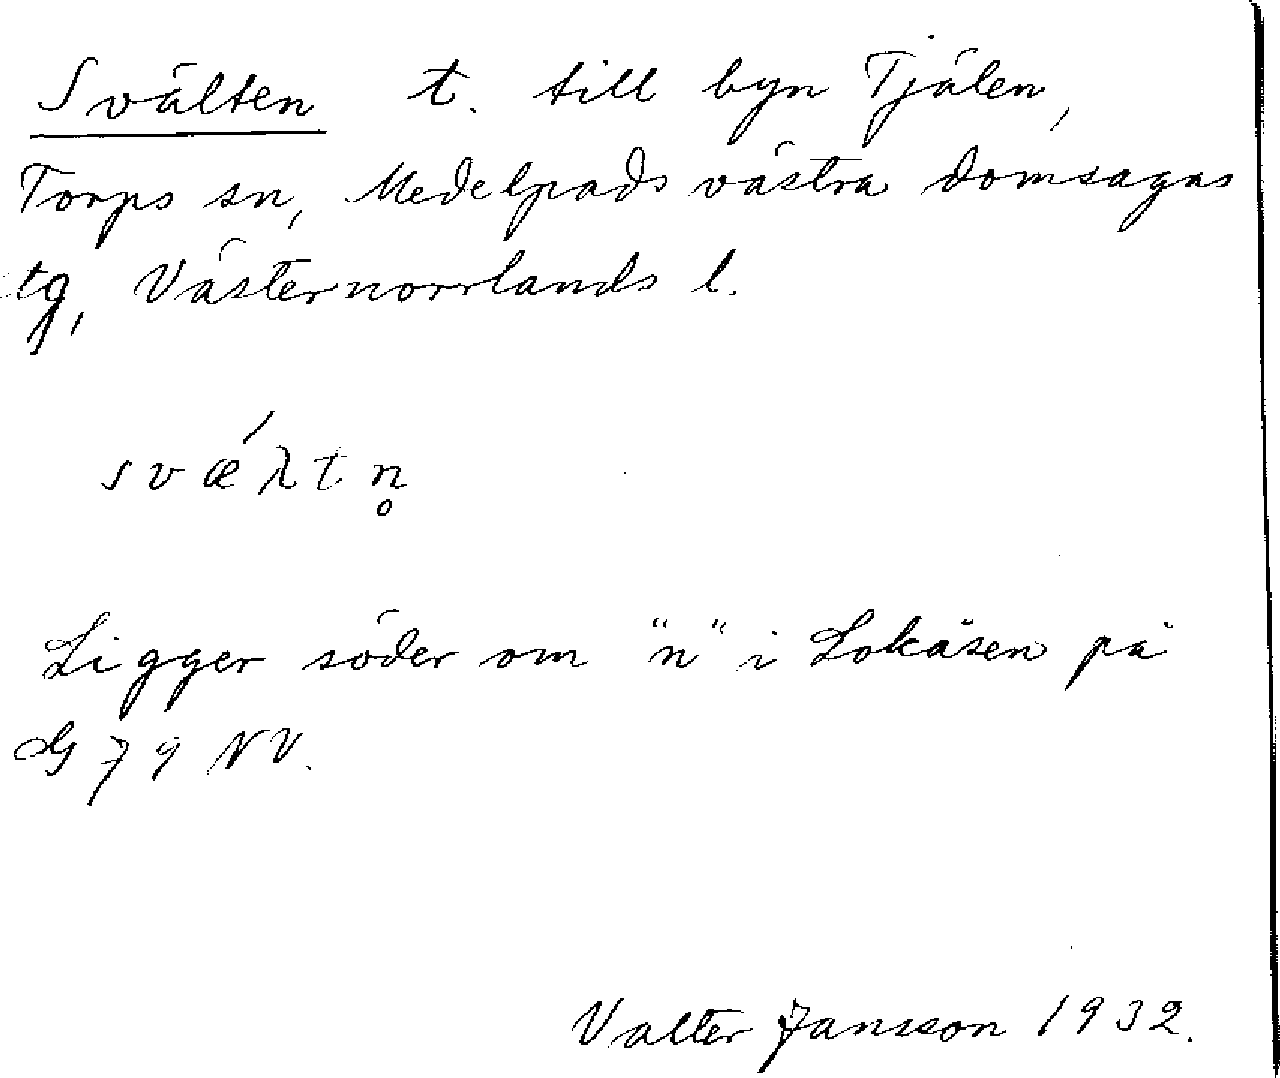 Svälten t. till byn Tjälen,
Torps sn, Medelpads västra domsagas
tg, Västernorrlands l.
svǽλtn̥
Ligger söder om "n" i Lokåsen på
G 79 NV.
Valter Jansson 1932.